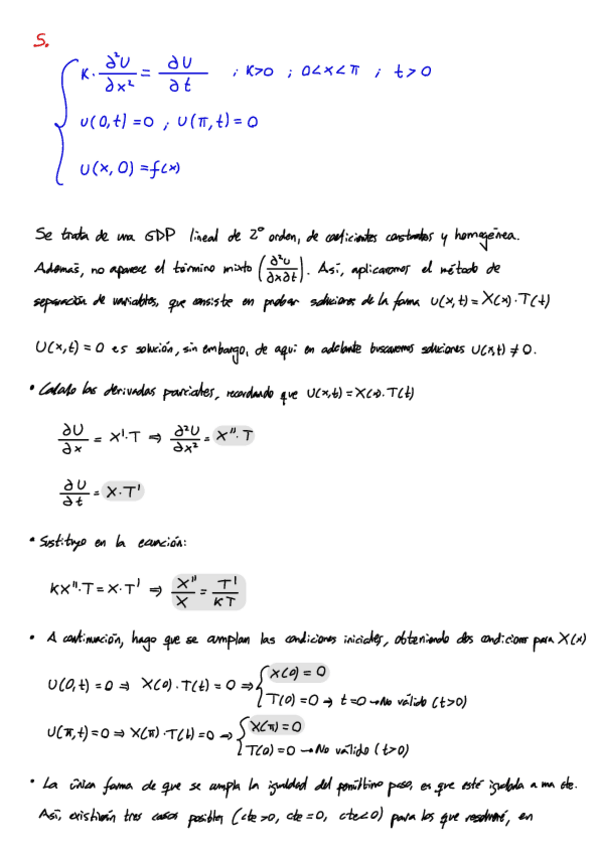 5.
K·∂²U/∂x² = ∂U/∂t ; K>0 ; 0<x<π ; t>0
U(0,t)=0 ; U(π,t)=0
U(x,0)=f(x)
Se trata de una EDP lineal de 2º orden, de coeficientes constantes y homogénea.
Además, no aparece el término mixto (∂²U/∂x∂t). Así, aplicaremos el método de
separación de variables, que consiste en probar soluciones de la forma U(x,t)=X(x)·T(t)
U(x,t)=0 es solución, sin embargo, de aquí en adelante buscaremos soluciones U(x,t)≠0.
• Calculo las derivadas parciales, recordando que U(x,t)=X(x)·T(t)
∂U/∂x = X'·T ⇒ ∂²U/∂x² = X''·T
∂U/∂t = X·T'
• Sustituyo en la ecuación:
KX''·T=X·T' ⇒ X''/X = T'/KT
• A continuación, hago que se cumplan las condiciones iniciales, obteniendo dos condiciones para X(x)
U(0,t)=0 ⇒ X(0)·T(t)=0 ⇒ { X(0)=0
T(0)=0 → t=0 → No válido (t>0)
U(π,t)=0 ⇒ X(π)·T(t)=0 ⇒ { X(π)=0
T(0)=0 → No válido (t>0)
• La única forma de que se cumpla la igualdad del penúltimo paso, es que esté igualada a una cte.
Así, existirán tres casos posibles (cte>0, cte=0, cte<0) para los que resolveré, en